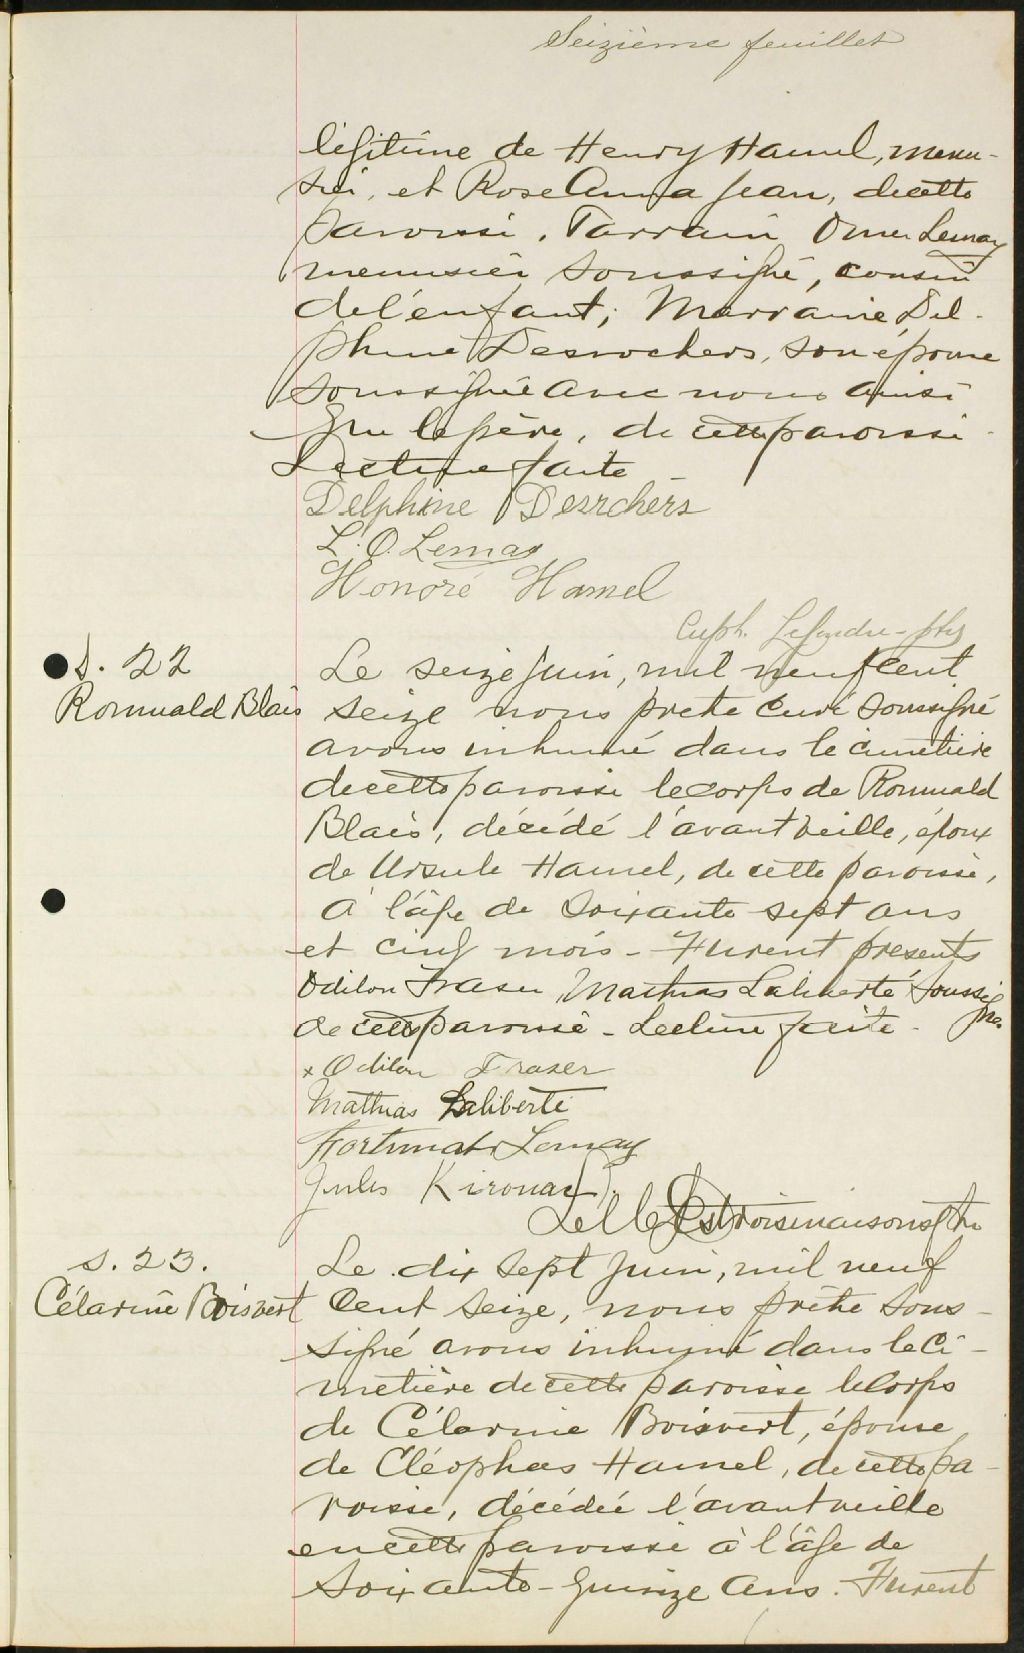 Seizième feuillet
légitime de Henry Hamel, menu-
sier, et Rose Anna Jean, de cette
paroisse. Parrain Omer Lemay
menuisier soussigné, cousin
de l'enfant; Marraine Del-
phine Desrochers, son épouse
soussignée avec nous ainsi
que le père, de cette paroisse.
Lecture faite
Delphine Desrchers
L. O. Lemay
Honoré Hamel
Euph. Lefendre - ptre
S. 22
Romuald Blais
Le seize juin, mil neuf cent
seize nous prêtre curé soussigné
avons inhumé dans le cimetière
de cette paroisse le corps de Romuald
Blais, décédé l'avant veille, époux
de Ursule Hamel, de cette paroisse,
à l'âge de soixante sept ans
et cinq mois - Furent présents
Odilon Fraser, Mathias Laliberté soussignés
de cette paroisse - Lecture faite -
x Odilon Fraser
Mathias Laliberté
Fortunat Lemay
Jules Kirouac
Destroismaisons ptre
S. 23.
Célarine Boisvert
Le dix sept juin, mil neuf
cent seize, nous prêtre sous-
signé avons inhumé dans le ci-
metière de cette paroisse le corps
de Célarine Boisvert, épouse
de Cléophas Hamel, de cette pa-
roisse, décédée l'avant veille
en cette paroisse à l'âge de
soixante-quinze ans. Furent